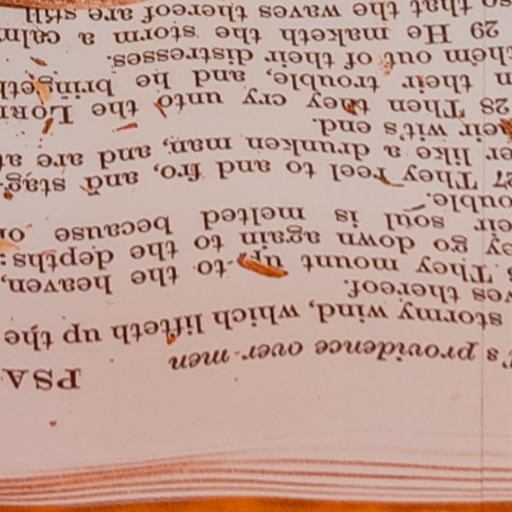 PSA
's providence over men
stormy wind, which lifteth up the
ves thereof.
They mount up to the heaven,
ey go down again to the depths:
eir soul is melted because
ouble.
27 They reel to and fro, and stag-
er like a drunken man, and are at
eir wit's end.
28 Then they cry unto the LORD
n their trouble, and he bringeth
them out of their distresses.
29 He maketh the storm a calm
so that the waves thereof are still